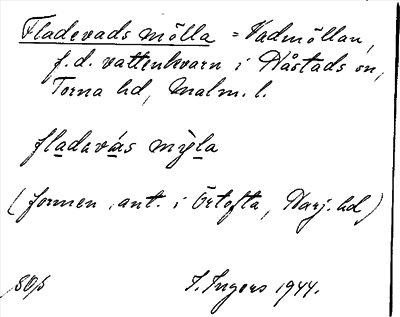 Fladevads mölla = Vadmöllan,
f.d. vattenkvarn i Håstads sn,
Torna hd, Malm. l.
fladavás mỳla
(formen ant. i Örtofta, Harj. hd)
I. Ingers 1944.